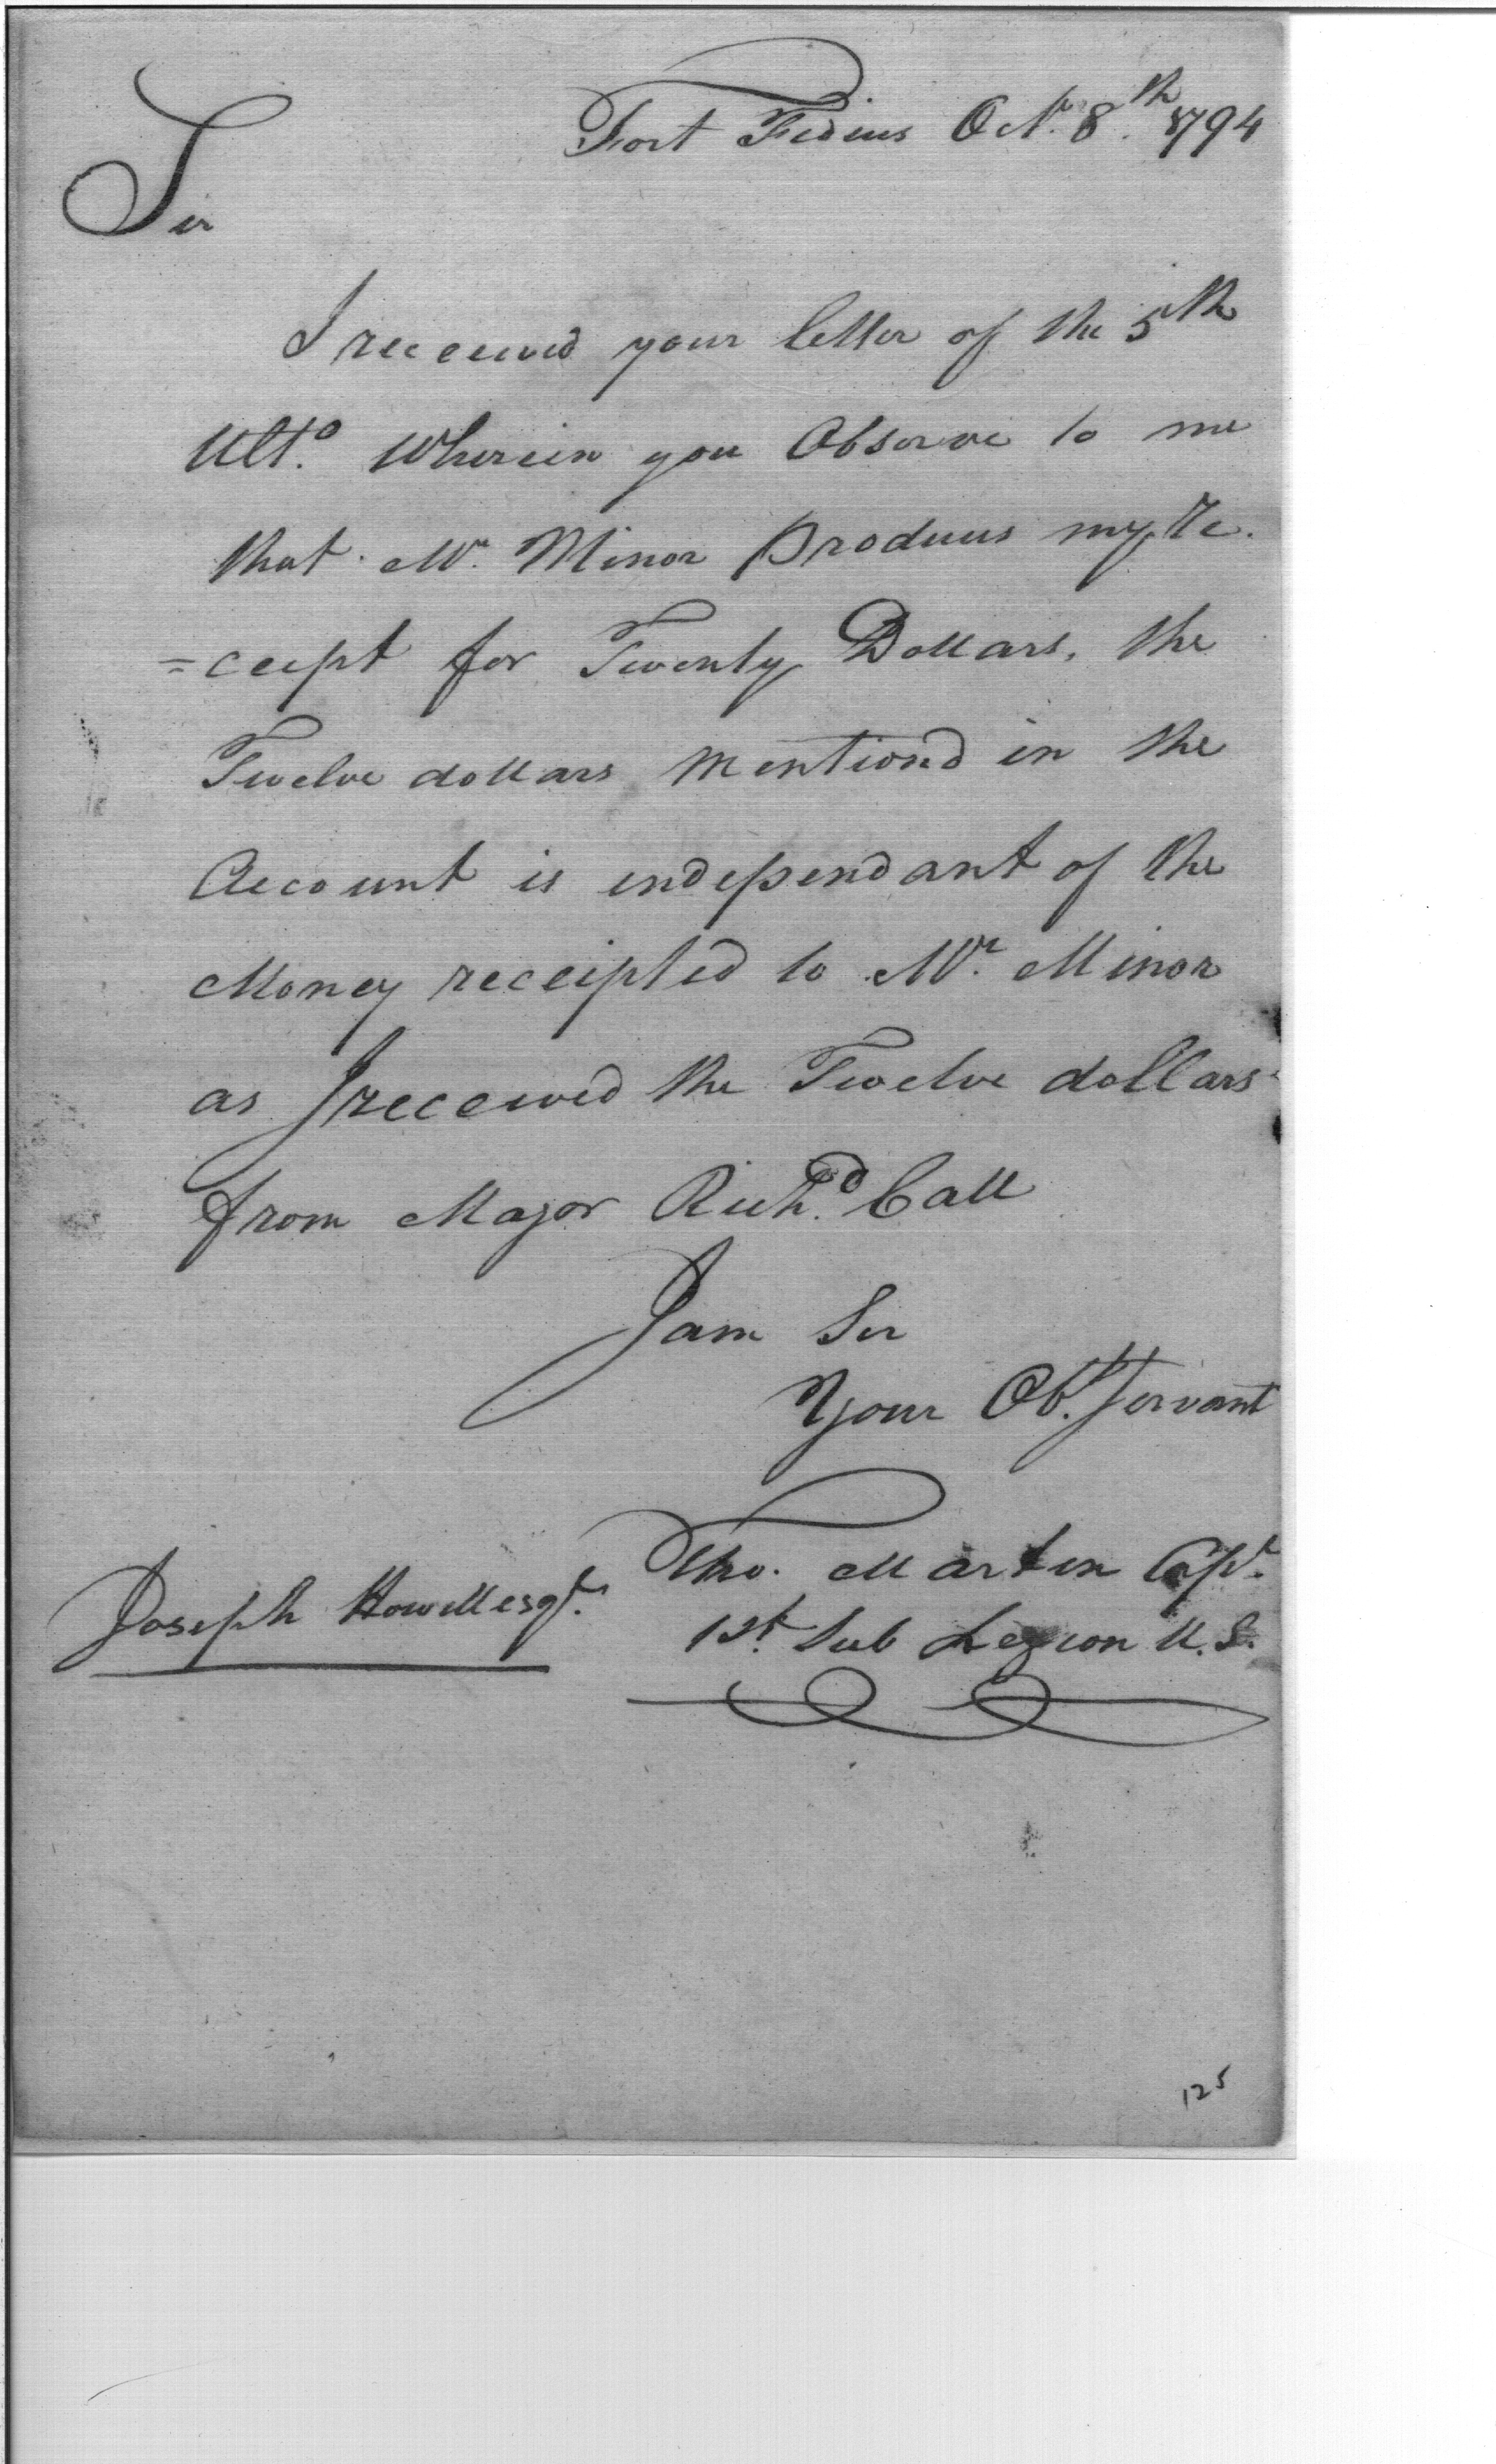 Fort Fidius Octr. 8th. 1794
Sir
I received your letter of the 5th
Ulto. Wherein you Observe to me
that Mr. Minor Produces my Re.
=ceipt for Twenty Dollars, the
Twelve dollars Mentiond in the
Account is independant of the
Money receipted to Mr. Minor
as I received the Twelve dollars
from Major Richd. Call
I am Sir
Your Obt. Servant
Tho. Martin Capt.
Joseph Howell esqr.
1st. Sub Legion U.S.
125